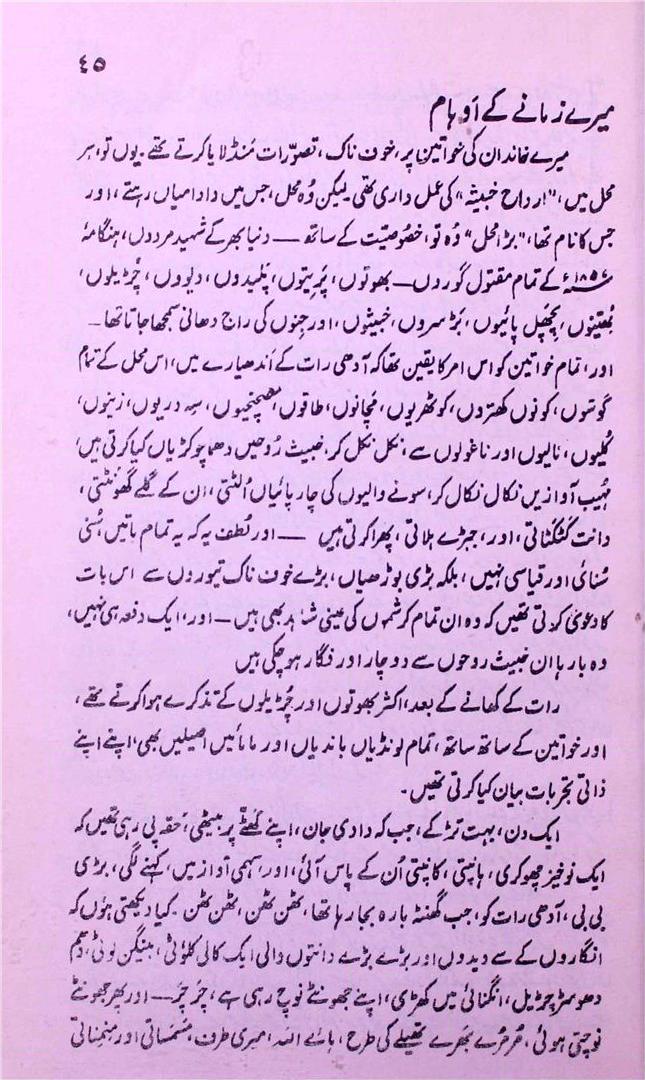 ٤٥
میرے زمانے کے اَوہام
میرے خاندان کی خواتین پر، خوف ناک، تصوّرات مُنڈلایا کرتے تھے۔ یوں تو، ہر
محل میں، "ارواحِ خبیثہ" کی عمل داری تھی۔ لیکن وُہ محل، جس میں دادا میاں رہتے، اور
جس کا نام تھا، "بڑا محل" وُہ تو، خصوصیّت کے ساتھ — دنیا بھر کے شہید مردوں، ہنگامۂ
۱۸۵۷ء کے تمام مقتول گوروں — بھوتوں، پَریتوں، پَلیدوں، دیووں، چُڑیلوں،
بُھتنِوں، پَچھل پائیوں، بُڑسروں، خبیثوں، اور جِنوں کی راج دھانی سمجھا جاتا تھا۔
اور، تمام خواتین کو اس امر کا یقین تھا کہ آدھی رات کے اَندھیارے میں، اس محل کے تمام
گوشوں، کونوں کھتروں، کوٹھریوں، مَچانوں، طاقوں، صحنچیوں، سہ دریوں، زینوں،
گلیوں، نالیوں اور ناغولوں سے، نکل نکل کر، خبیث رُوحیں دھما چوکڑیاں کیا کرتی ہیں،
مُہیب آوازیں نکال نکال کر، سونے والیوں کی چارپائیاں اُلٹتی، ان کے گلے گھونٹتی،
دانت کٹکٹاتی، اور، جبڑے ہلاتی، پھرا کرتی ہیں — اور لُطف یہ کہ یہ تمام باتیں، سُنی
سُنائی اور قیاسی نہیں، بلکہ بڑی بوڑھیاں، بڑے خوف ناک تیوروں سے اس بات
کا دعویٰ کرتی تھیں کہ وہ ان تمام کرشموں کی عینی شاہد بھی ہیں — اور، ایک دفعہ ہی نہیں،
وہ بارہا ان خبیث روحوں سے دوچار اور فگار ہو چکی ہیں
رات کے کھانے کے بعد، اکثر بھوتوں اور چُڑیلوں کے تذکرے ہوا کرتے تھے،
اور خواتین کے ساتھ ساتھ، تمام لونڈیاں باندیاں اور مامائیں اصیلیں بھی، اپنے اپنے
ذاتی تجربات بیان کیا کرتی تھیں۔
ایک دن، بہت تڑکے، جب کہ دادی جان، اپنے کَھٹے پر بیٹھی، حُقہ پی رہی تھیں کہ
ایک نوخیز چھوکری، ہانپتی، کانپتی اُن کے پاس آئی، اور، سہمی آواز میں، کہنے لگی، بڑی
بی بی، آدھی رات کو، جب گھنٹہ بارہ بجا رہا تھا، ٹھن ٹھن، ٹھن ٹھن۔ کیا دیکھتی ہوں کہ
انگاروں کے سے دیدوں اور بڑے بڑے دانتوں والی ایک کالی کلوٹی، بینگن لوٹی، دھم
دھوسڑ چڑیل، انگنائی میں کھڑی، اپنے جھونٹے نوچ رہی ہے، چَر چَر — اور پھر جھونٹے
نوچتی ہوئی، مُرمُرے بھرے تھیلے کی طرح، ہائے اللہ، میری طرف، مسمساتی اور منِمنِاتی